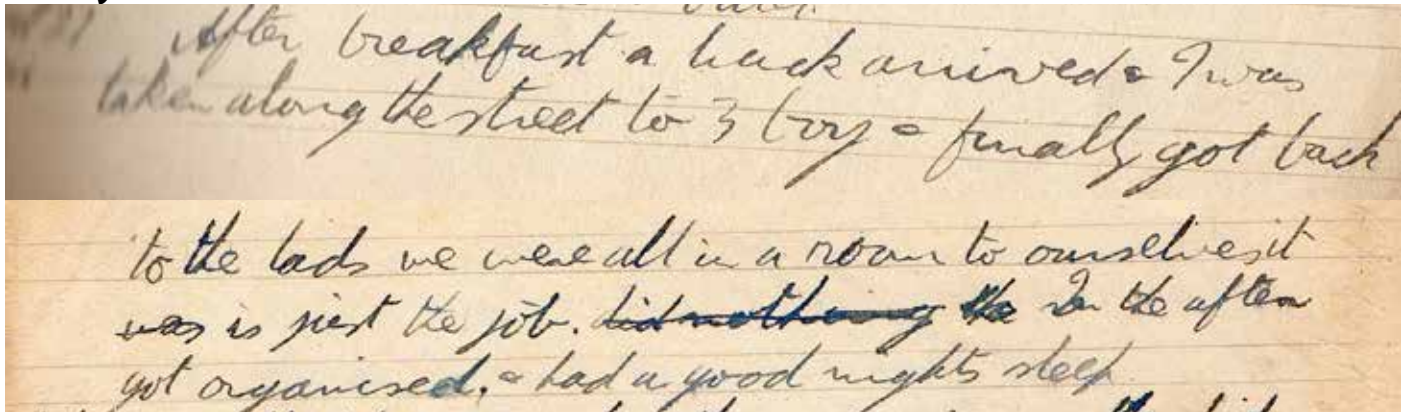 After breakfast a hack arrived & I was
taken along the street to 3 troy & finally got back
to the lads we were all in a room to ourselves it
was is just the job. did nothing the In the aftern
got organised, & had a good nights sleep